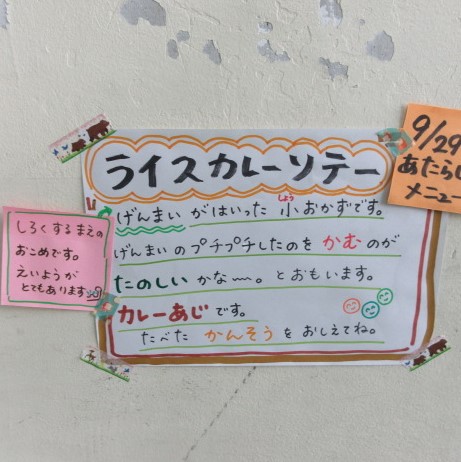 ライスカレーソテー
げんまい がはいった 小おかずです。
しょう
げんまいのプチプチしたのを かむ のが
たのしい かな〜〜。とおもいます。
カレーあじ です。
たべた かんそう を おしえてね。
しろくするまえの
おこめです。
えいようが
とてもあります
9/29
あたらし
メニュー